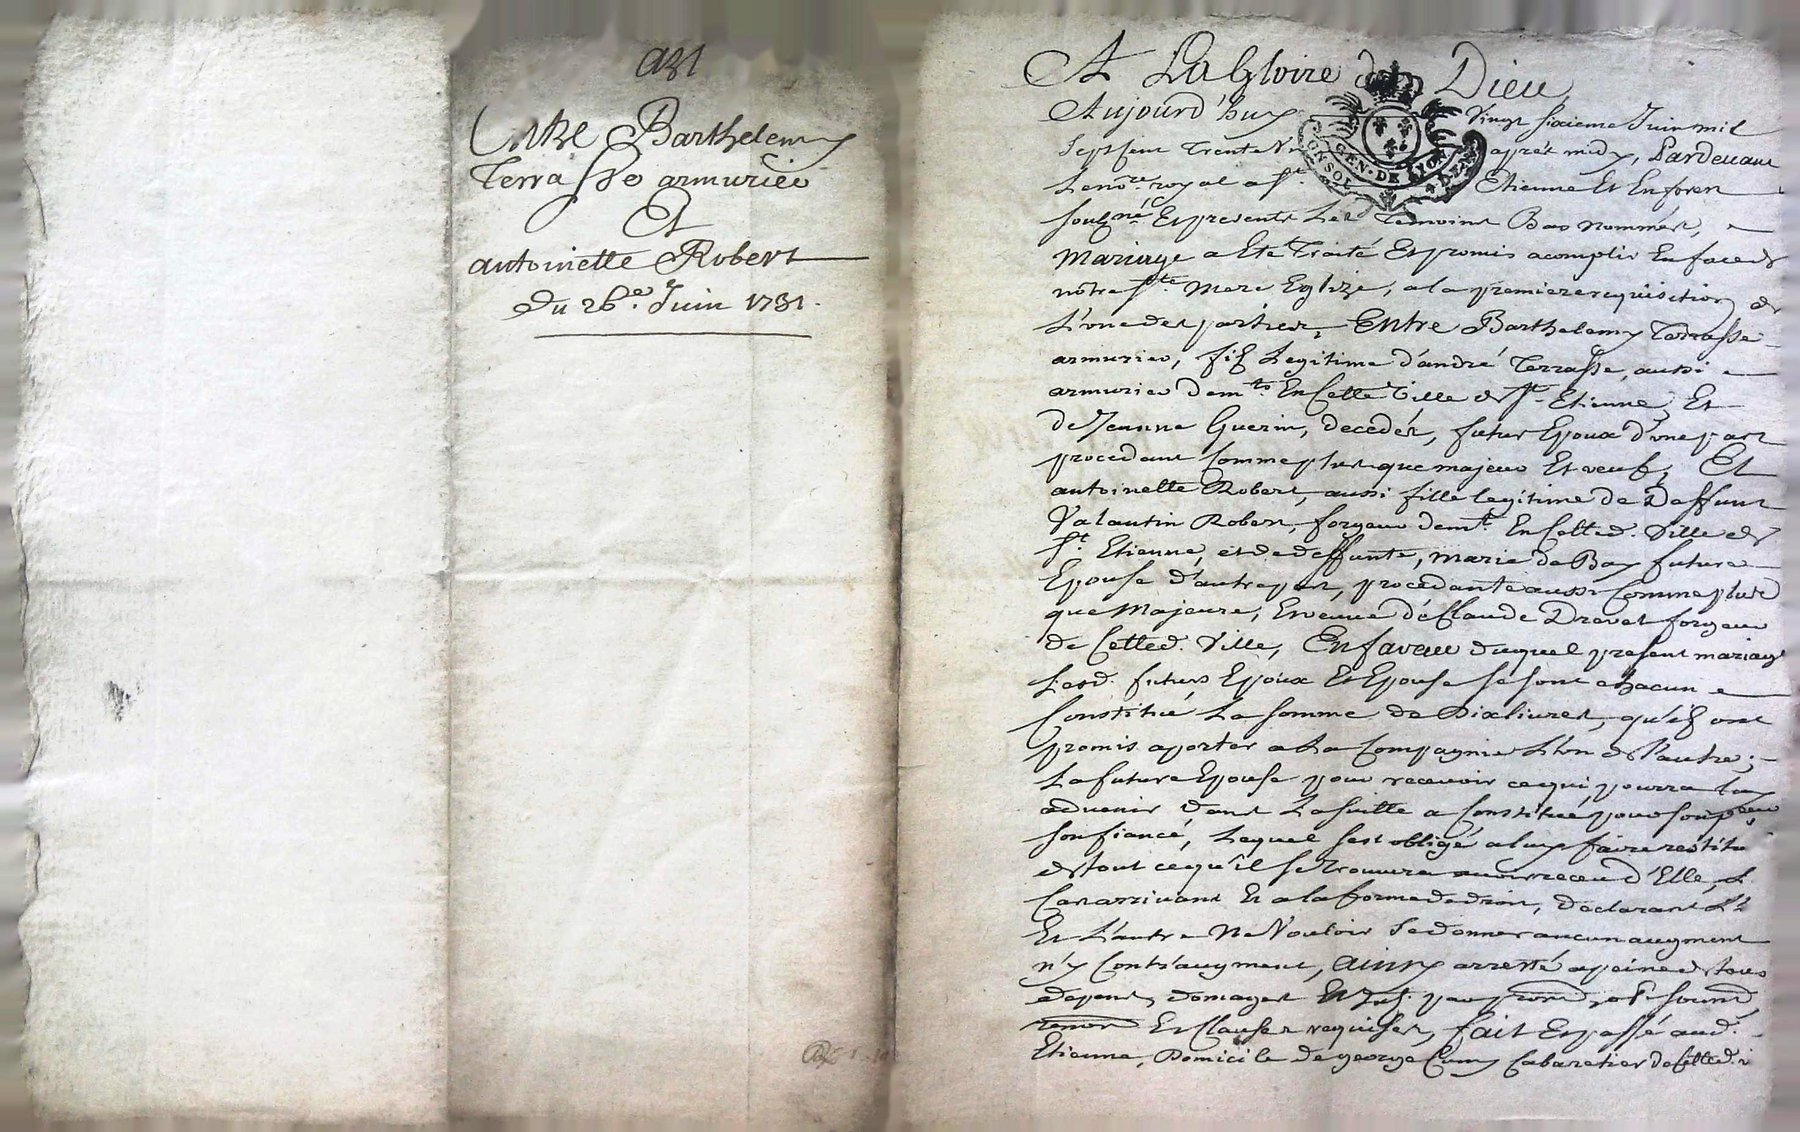 a31
Entre Barthelemy
Terrasse armurier
Et
antoinette Robert
Du 26e. Juin 1731.
A La Gloire de Dieu
Aujourd'huy Vingt sixieme Juin mil
Sept cent Trente Un après midy, Pardevant
Le nore. royal a st. Etienne Et En forest
sousné. Et presents Les Temoins Bas nommés,
GEN. DE LYON
Mariage a Eté Traité Et promis acomplir En face de
nôtre ste. Mere Eglize, a la premiere requisition de
L'une des parties, Entre Barthelemy Terrasse
armurier, fils Legitime d'andré Terrasse, aussi
armurier demts. En Cette Ville de st. Etienne, Et
de Jeanne Guerin, decedés, futur Epoux d'une part
procedant Comme plus que majeur Et veuf, Et
antoinette Robert, aussi fille legitime de Deffunt
Valantin Robert, forgeur demt. En Cetted. Ville de
st. Etienne, et de deffunte, marie de Bay future
Epouse d'autre part, procedante aussi Comme plus
que Majeure, Et veuve de Claude Drevet forgeur
de Cetted. Ville, En faveur duquel present mariage
Lesd. futurs Epoux Et Epouse se sont chacun
Constitué La somme de Dix livres, qu'ils ont
promis aporter a La Compagnie L'un de L'autre;
La future Epouse pour recevoir ce qui pourra luy
advenir dans La suitte a Constitué pour son
son fiancé, Lequel s'est obligé a luy faire restitu
de tout ce qu'il se Trouvera avoir receu d'Elle, Le
Cas arrivant Et a la forme de droit, Declarant L'un
Et L'autre Ne Vouloir se donner aucun augment
n'y Contr'augment, ainsy arresté a peine de tous
depens, domages Et
Et Clauses requises, fait Et passé aud.
Etienne, Domicile de george Cabaretier de Cetted.